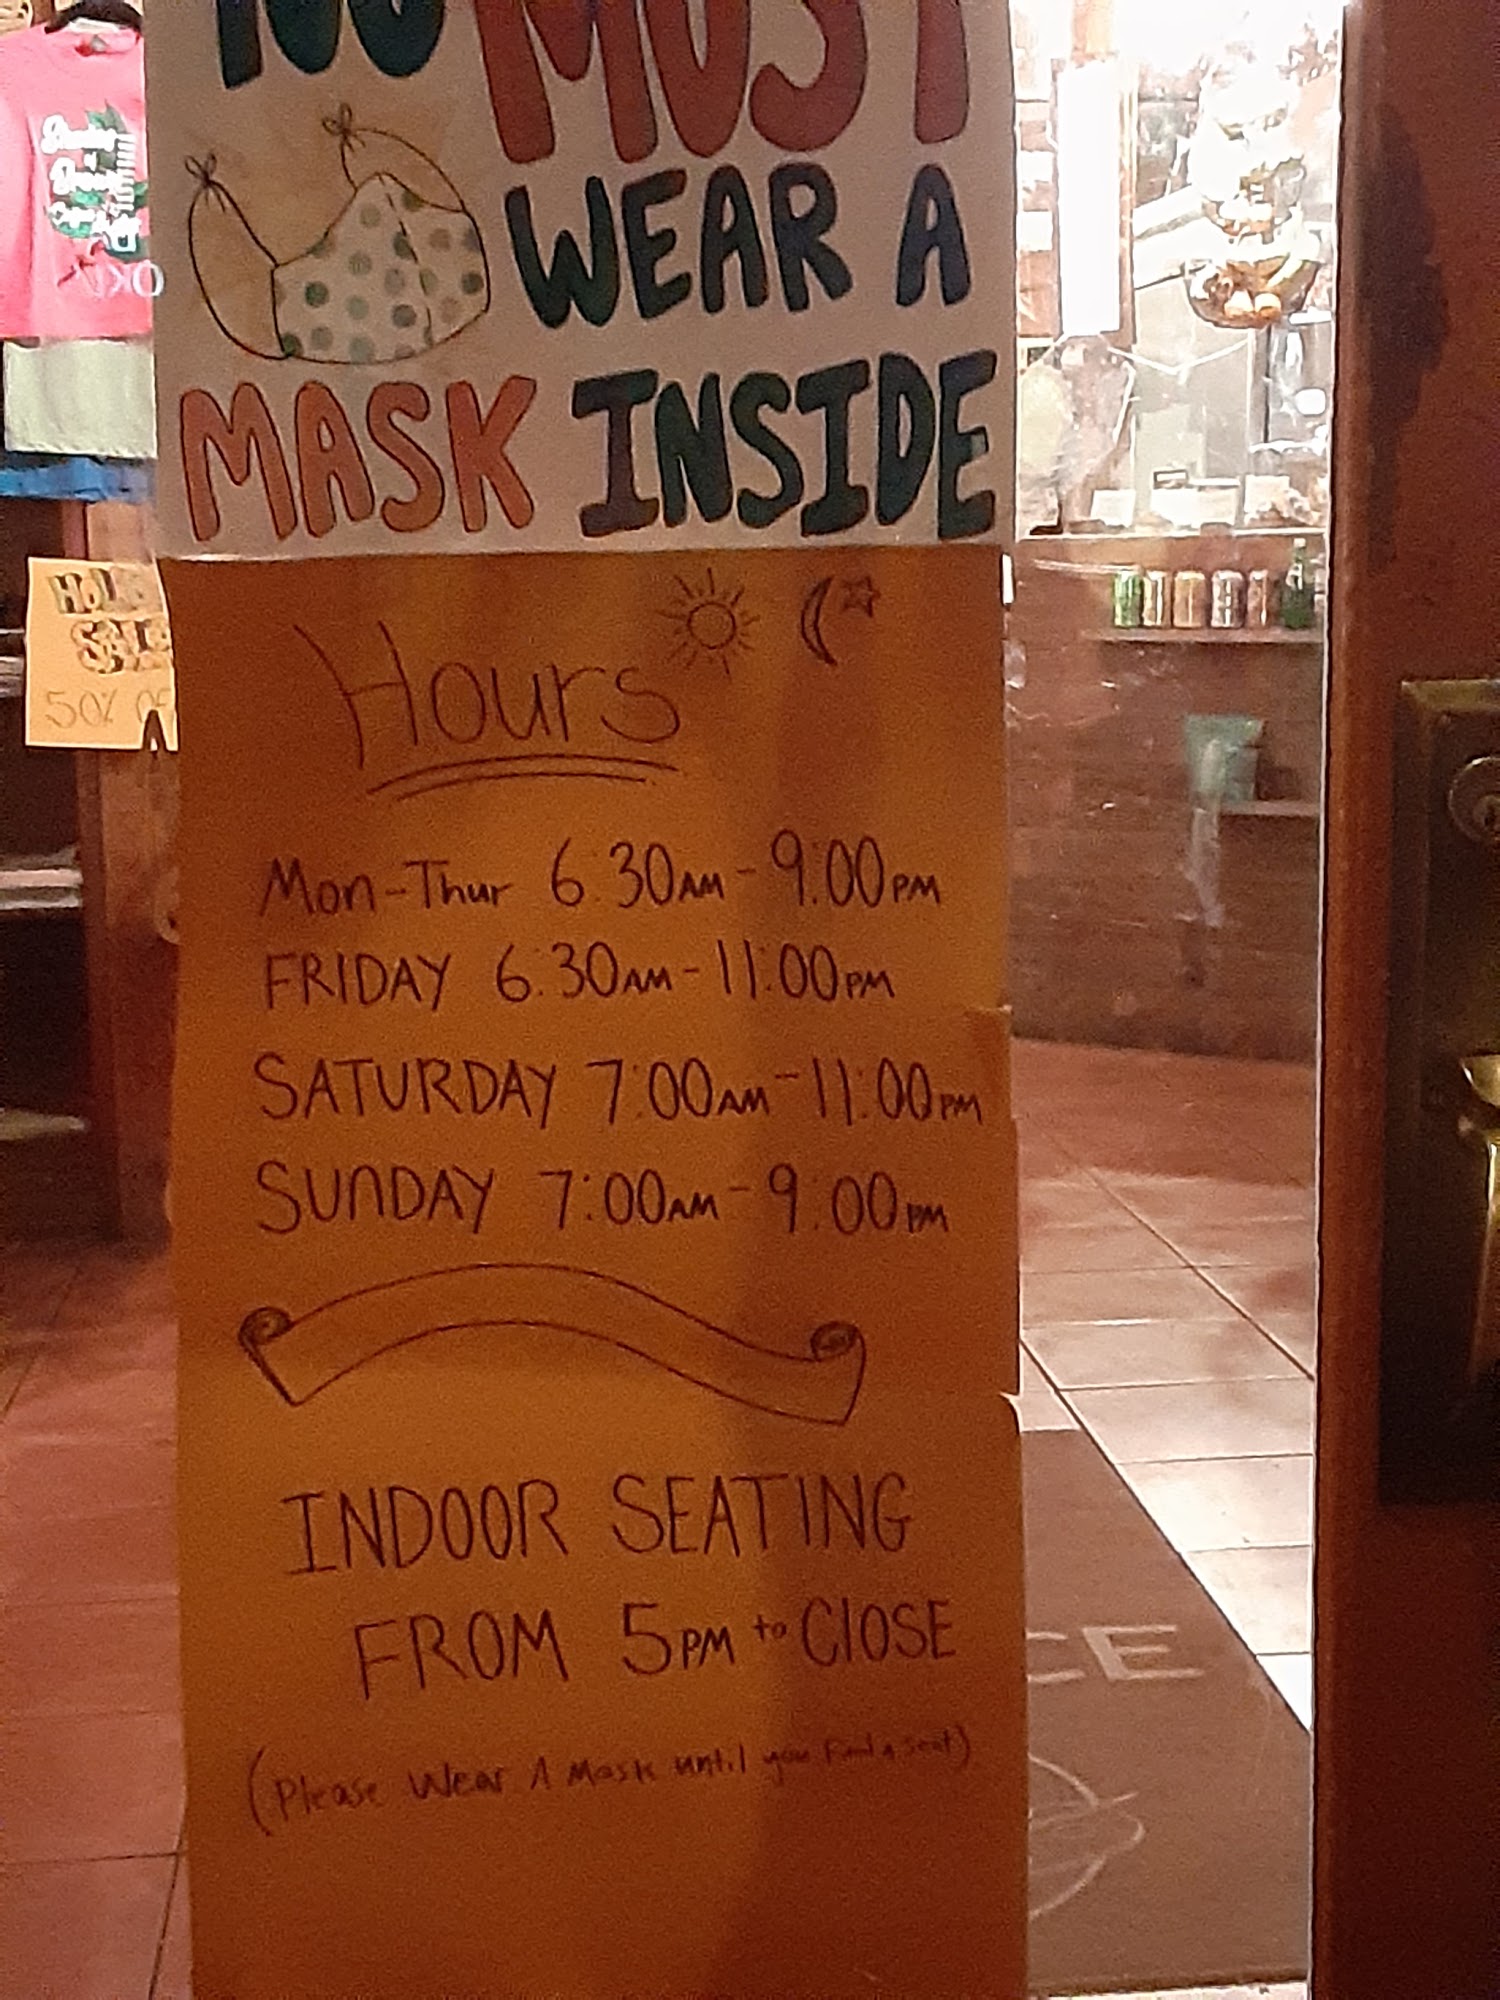 YOU MUST
WEAR A
MASK INSIDE
SALE
50%
Hours
Mon-Thur 6:30AM-9:00PM
FRIDAY 6:30AM-11:00PM
SATURDAY 7:00AM-11:00PM
SUNDAY 7:00AM-9:00PM
INDOOR SEATING
FROM 5PM to ClOSE
(Please Wear A Mask until you Find a seat)